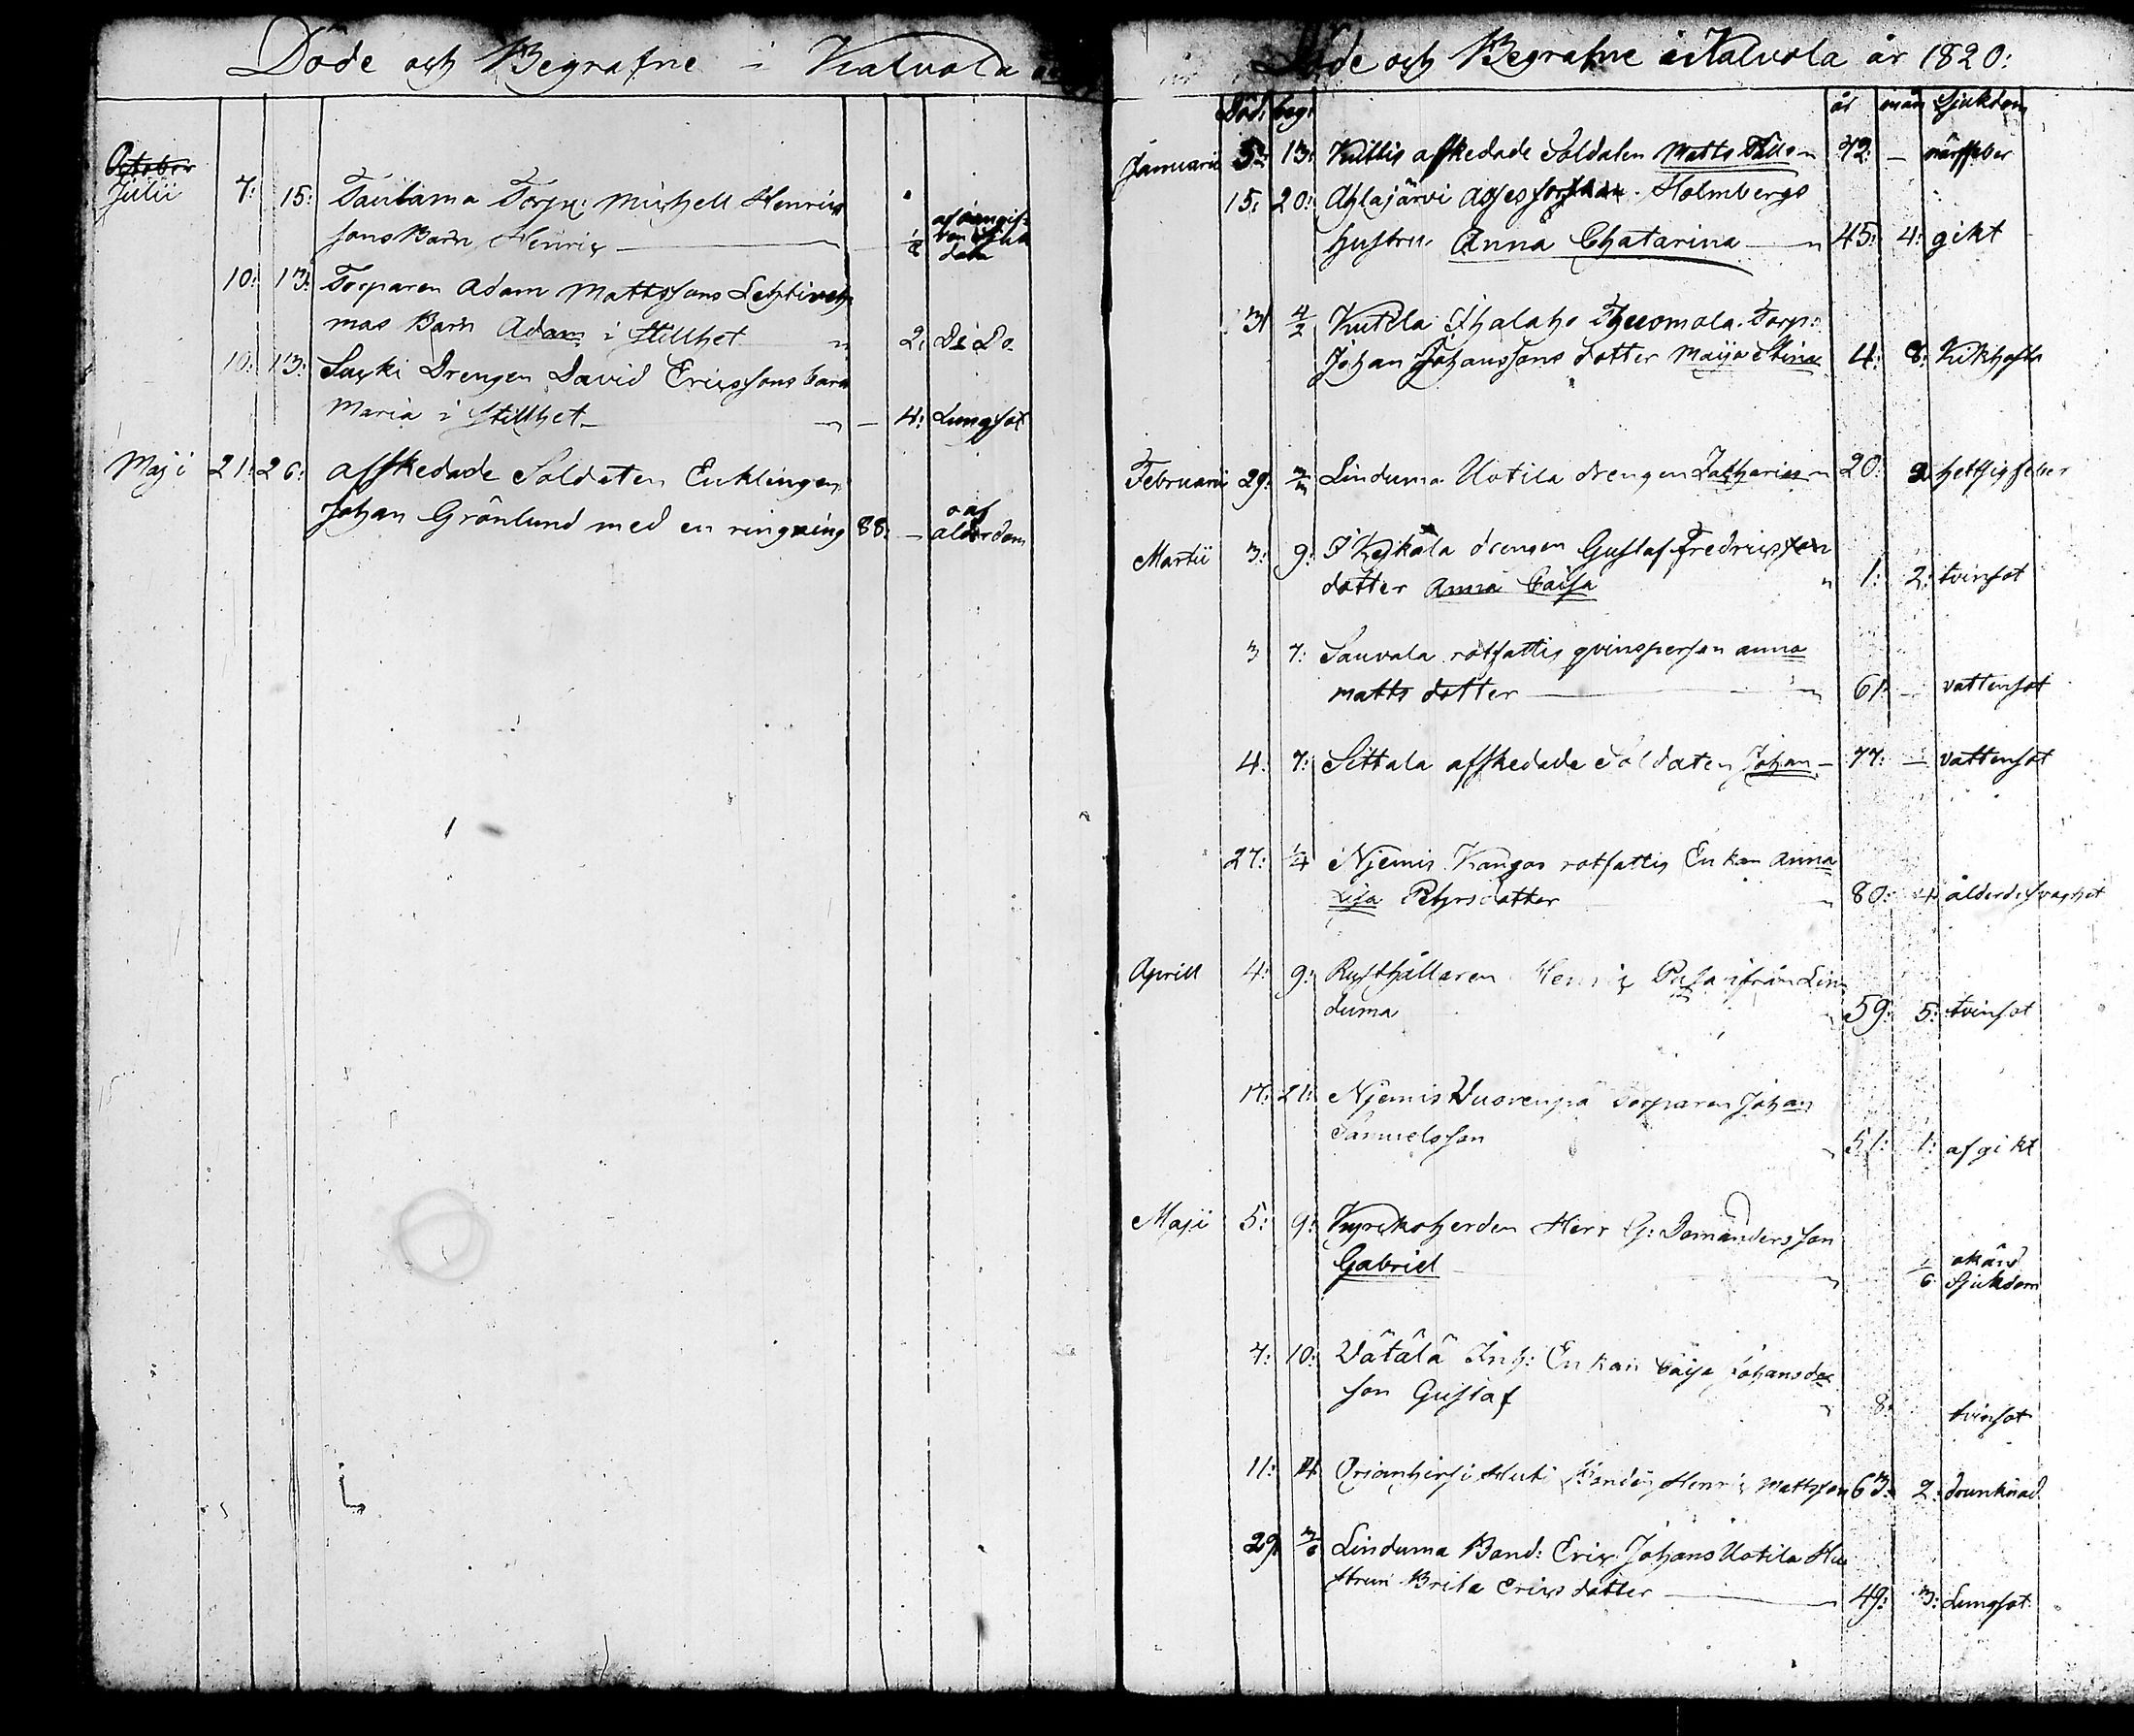 Döde och Begrafne i Kalvola
October
Julii 7: 15: Taulama Torp: Michell Henrics
sons Barn Henric af oangif-
ven sjuk
dom
10: 13: Torparen Adam Mattssons
mas Barn Adam i stillhet 2: Do Do
10: 13: Sacki Drengen David Ericssons barn
Maria i stillhet – 4: Lungsot
Maji 21: 26: affskedade Soldaten Enklingen
Johan Grönlund med en ringning 88: – af
alderdom
Döde och Begrafne i Kalvola år 1820:
Död: beg: år mån Sjukdom
Januarii 5: 13: Kutlis afskedade Soldaten Matts 42: – närffeber
15: 20: Ahlajärvi Holmbergs
hustru Anna Chatarina 45: 4: gikt
31 4/2 Kutila Torp:
Johan Johanssons dotter Maija Stina 4: 8: Kikhosta
Februarii 29: Linduma Uotila drengen Zacharias 20: 2 hettsig feber
Martii 3: 9: drengen Gustaf Fredricsson
dotter Anna Caisa 1: 2: tvinsot
3 7: Sauvala rotfattig qvinsperson anna
matts dotter 61: – vattensot
4: 7: Sittala afskedade Soldaten Johan – 77: – vattensot
27: 1/4 Njemis Kangas rotfattig Enkan Anna
Lisa Pehrsdotter 80: 4: ålderdsvaghet
Aprill 4: 9: Rusthållaren Henric från Lin
duma 59: 5: tvinsot
17: 21: Njemis Vuorenpä Torparen Johan
Samuelsson 51: 1: af gikt
Maji 5: 9: Kyrckoherden Herr G: Domanders son
Gabriel 1/6 okänd
Sjukdom
7: 10: Vätälä Inh: Enkan Caisa Johansdr
son Gustaf 8: tvinsot
11: 14 Orjanhirsi Huti Henric Mattsson 63: 2: drunknad
29 3/6 Linduma Bond: Eric Johans Uotila Hu
strun Brita Erics dotter 49: 3: Lungsot